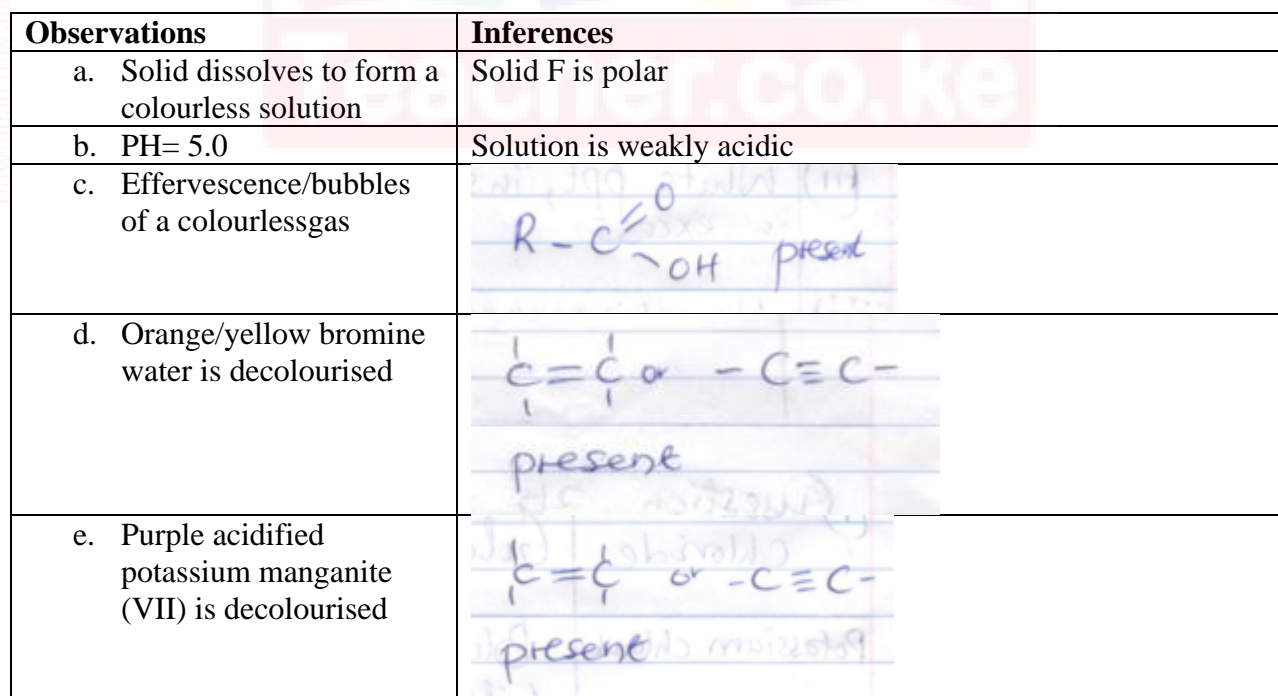 Teacher.co.ke
Observations
Inferences
a. Solid dissolves to form a
colourless solution
Solid F is polar
b. PH= 5.0
Solution is weakly acidic
c. Effervescence/bubbles
of a colourlessgas
O
R - C
OH present
d. Orange/yellow bromine
water is decolourised
C=C or - C≡C-
present
e. Purple acidified
potassium manganite
(VII) is decolourised
C=C or -C≡C-
present